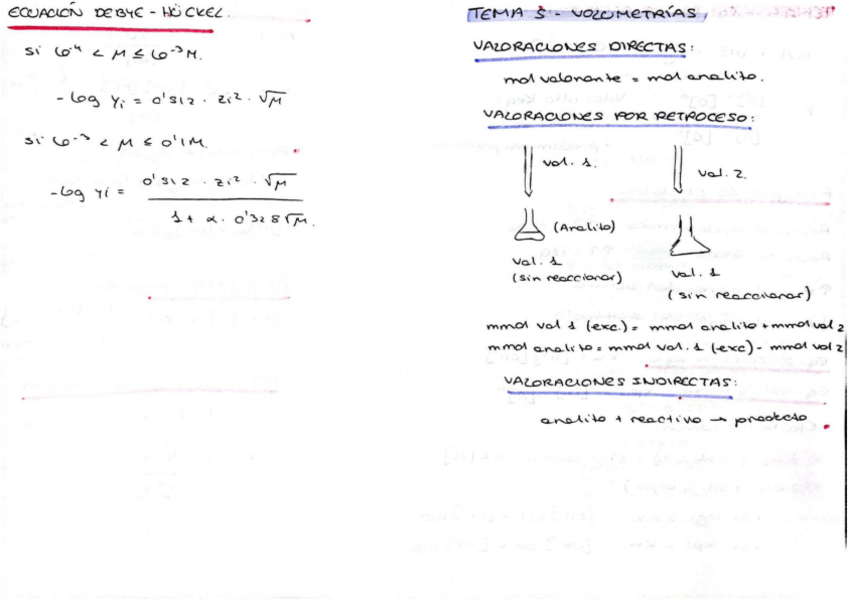 ECUACIÓN DEBYE - HÜCKEL.
si 10⁻⁴ < μ ≤ 10⁻³ M.
- log γi = 0'512 · zi² · √μ
si 10⁻³ < μ ≤ 0'1M.
- log γi = 0'512 · zi² · √μ / 1 + α · 0'328 √μ.
TEMA 5 - VOLUMETRÍAS.
VALORACIONES DIRECTAS:
mol valorante = mol analito.
VALORACIONES POR RETROCESO:
val. 1.
val. 2.
(Analito)
val. 1
(sin reaccionar)
val. 1
(sin reaccionar)
mmol val 1 (exc.) = mmol analito + mmol val 2
mmol analito = mmol val. 1 (exc) - mmol val 2
VALORACIONES INDIRECTAS:
analito + reactivo → producto